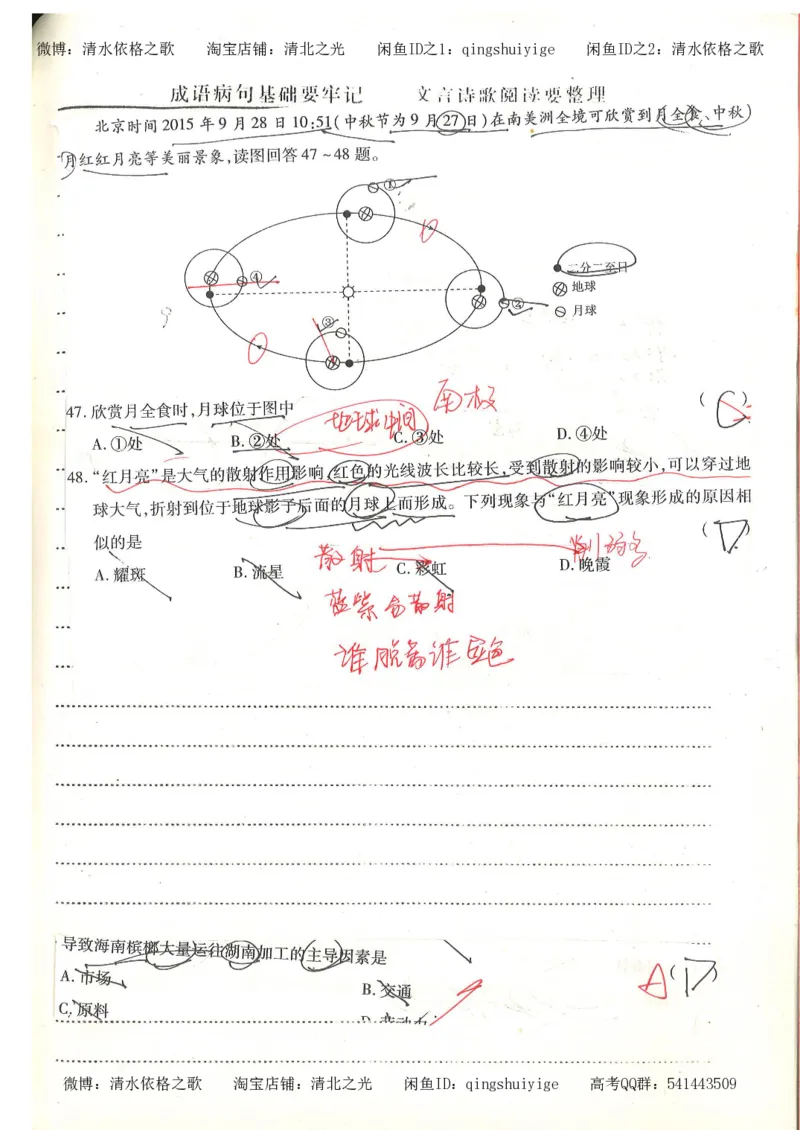 微博：清水依格之歌 淘宝店铺：清北之光 闲鱼ID之1：qingshuiyige 闲鱼ID之2：清水依格之歌
成语病句基础要牢记 文言诗歌阅读要整理
北京时间2015年9月28日10:51(中秋节为9月27日)在南美洲全境可欣赏到月全食、中秋
月红红月亮等美丽景象,读图回答47～48题。
①
④
②
③
二分二至日
地球
月球
南极
47.欣赏月全食时,月球位于图中 (C)
地球中间
A.①处 B.②处 C.③处 D.④处
48.“红月亮”是大气的散射作用影响,红色的光线波长比较长,受到散射的影响较小,可以穿过地
球大气,折射到位于地球影子后面的月球上而形成。下列现象与“红月亮”现象形成的原因相
似的是 (D)
散射
A.耀斑 B.流星 C.彩虹 D.晚霞
蓝紫合散射
谁脱离谁变色
导致海南槟榔大量运往湖南加工的主导因素是
A (D)
A.市场 B.交通
C.原料 D.劳动力
微博：清水依格之歌 淘宝店铺：清北之光 闲鱼ID：qingshuiyige 高考QQ群：541443509